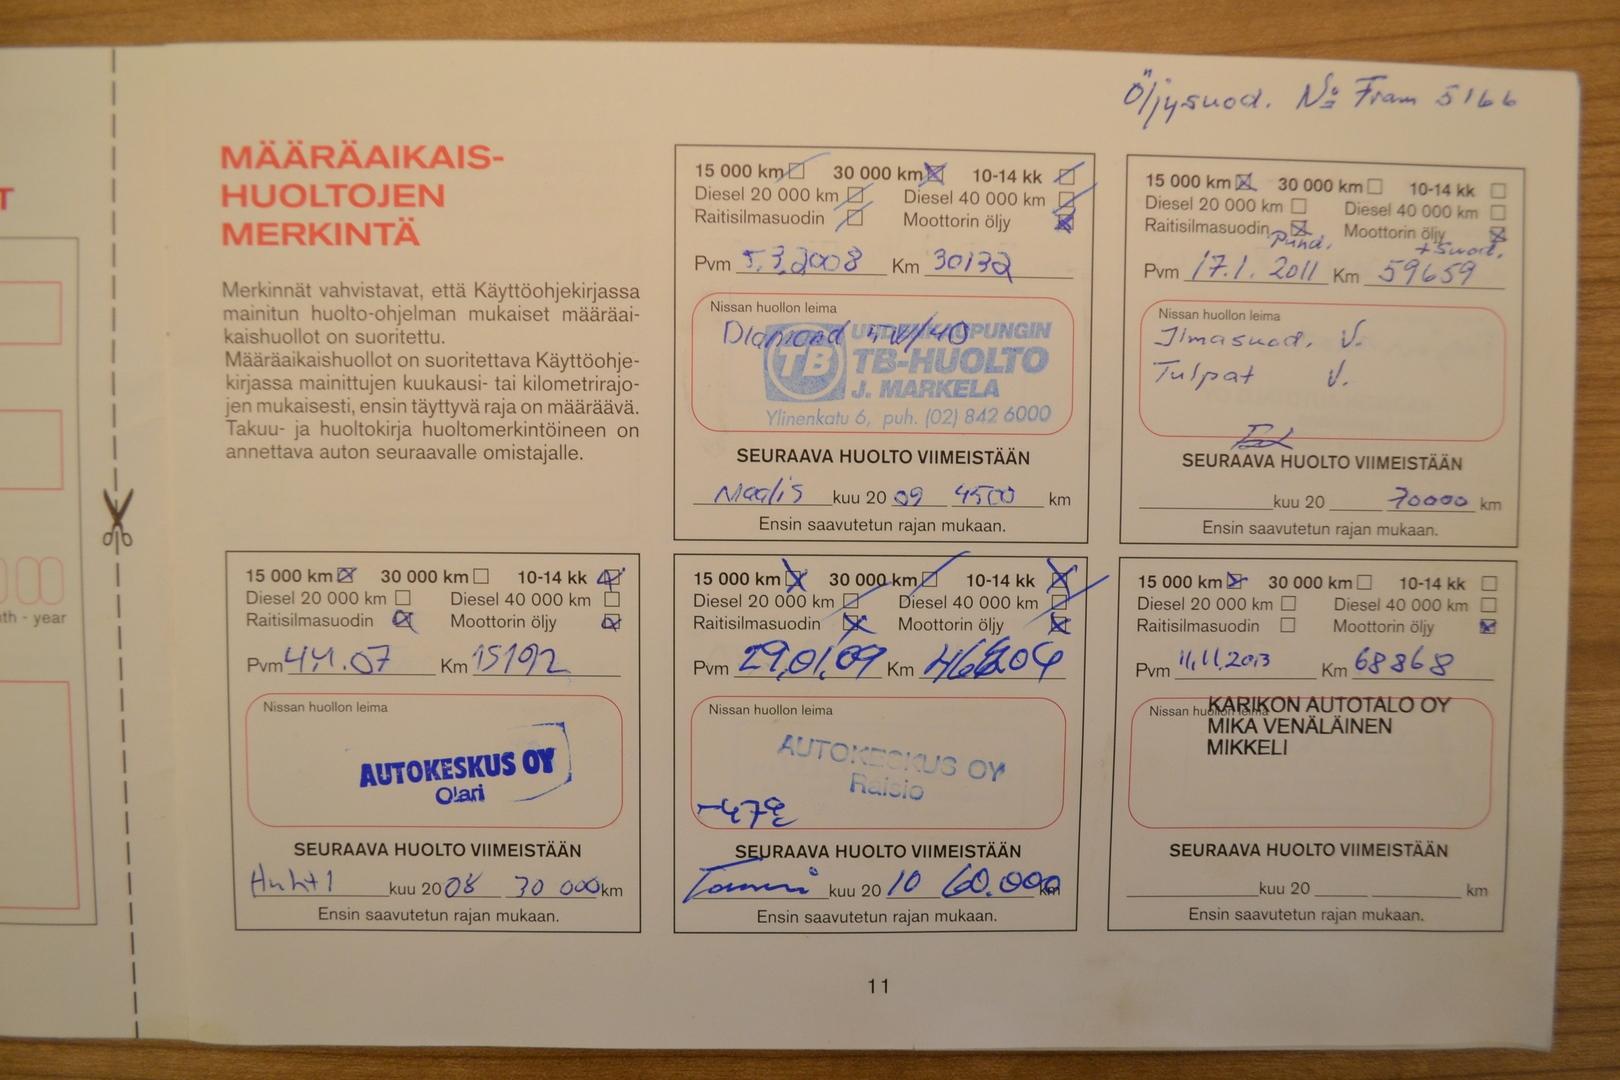 Öljysuod. No Fram 5166
T
MÄÄRÄAIKAIS-
HUOLTOJEN
MERKINTÄ
Merkinnät vahvistavat, että Käyttöohjekirjassa
mainitun huolto-ohjelman mukaiset määräai-
kaishuollot on suoritettu.
Määräaikaishuollot on suoritettava Käyttöohje-
kirjassa mainittujen kuukausi- tai kilometrirajo-
jen mukaisesti, ensin täyttyvä raja on määräävä.
Takuu- ja huoltokirja huoltomerkintöineen on
annettava auton seuraavalle omistajalle.
15 000 km 30 000 km 10-14 kk
Diesel 20 000 km Diesel 40 000 km
Raitisilmasuodin Moottorin öljy
Pvm 5.3.2008 Km 30132
Nissan huollon leima
Diamond 5W/40
UUDENKAUPUNGIN
TB TB-HUOLTO
J. MARKELA
Ylinenkatu 6, puh. (02) 842 6000
SEURAAVA HUOLTO VIIMEISTÄÄN
Maalis kuu 20 09 4500 km
Ensin saavutetun rajan mukaan.
15 000 km 30 000 km 10-14 kk
Diesel 20 000 km Diesel 40 000 km
Raitisilmasuodin Moottorin öljy
Puhd. + Suod.
Pvm 17.1. 2011 Km 59659
Nissan huollon leima
Ilmasuod. V.
Tulpat V.
SEURAAVA HUOLTO VIIMEISTÄÄN
kuu 20 70000 km
Ensin saavutetun rajan mukaan.
th - year
15 000 km 30 000 km 10-14 kk
Diesel 20 000 km Diesel 40 000 km
Raitisilmasuodin Moottorin öljy
Pvm Km 15192
Nissan huollon leima
AUTOKESKUS OY
Olari
SEURAAVA HUOLTO VIIMEISTÄÄN
Huhti kuu 20 08 30 000 km
Ensin saavutetun rajan mukaan.
15 000 km 30 000 km 10-14 kk
Diesel 20 000 km Diesel 40 000 km
Raitisilmasuodin Moottorin öljy
Pvm 29.01.09 Km
Nissan huollon leima
AUTOKESKUS OY
Raisio
SEURAAVA HUOLTO VIIMEISTÄÄN
Tammi kuu 20 10 60.000 km
Ensin saavutetun rajan mukaan.
15 000 km 30 000 km 10-14 kk
Diesel 20 000 km Diesel 40 000 km
Raitisilmasuodin Moottorin öljy
Pvm 11.11.2013 Km 68868
Nissan huollon leima
KARIKON AUTOTALO OY
MIKA VENÄLÄINEN
MIKKELI
SEURAAVA HUOLTO VIIMEISTÄÄN
kuu 20 km
Ensin saavutetun rajan mukaan.
11